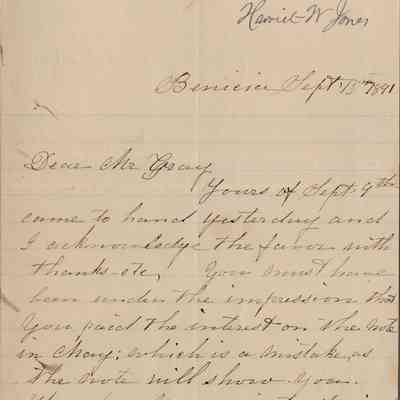 Harriet W Jones
Benicia Sept 13th 1891
Dear Mr Gray
Yours of Sept 9th
came to hand yesterday and
I acknowledge the favor with
thanks etc, You must have
been under the impression that
you paid the interest on the note
in May; which is a mistake, as
the note will show you.